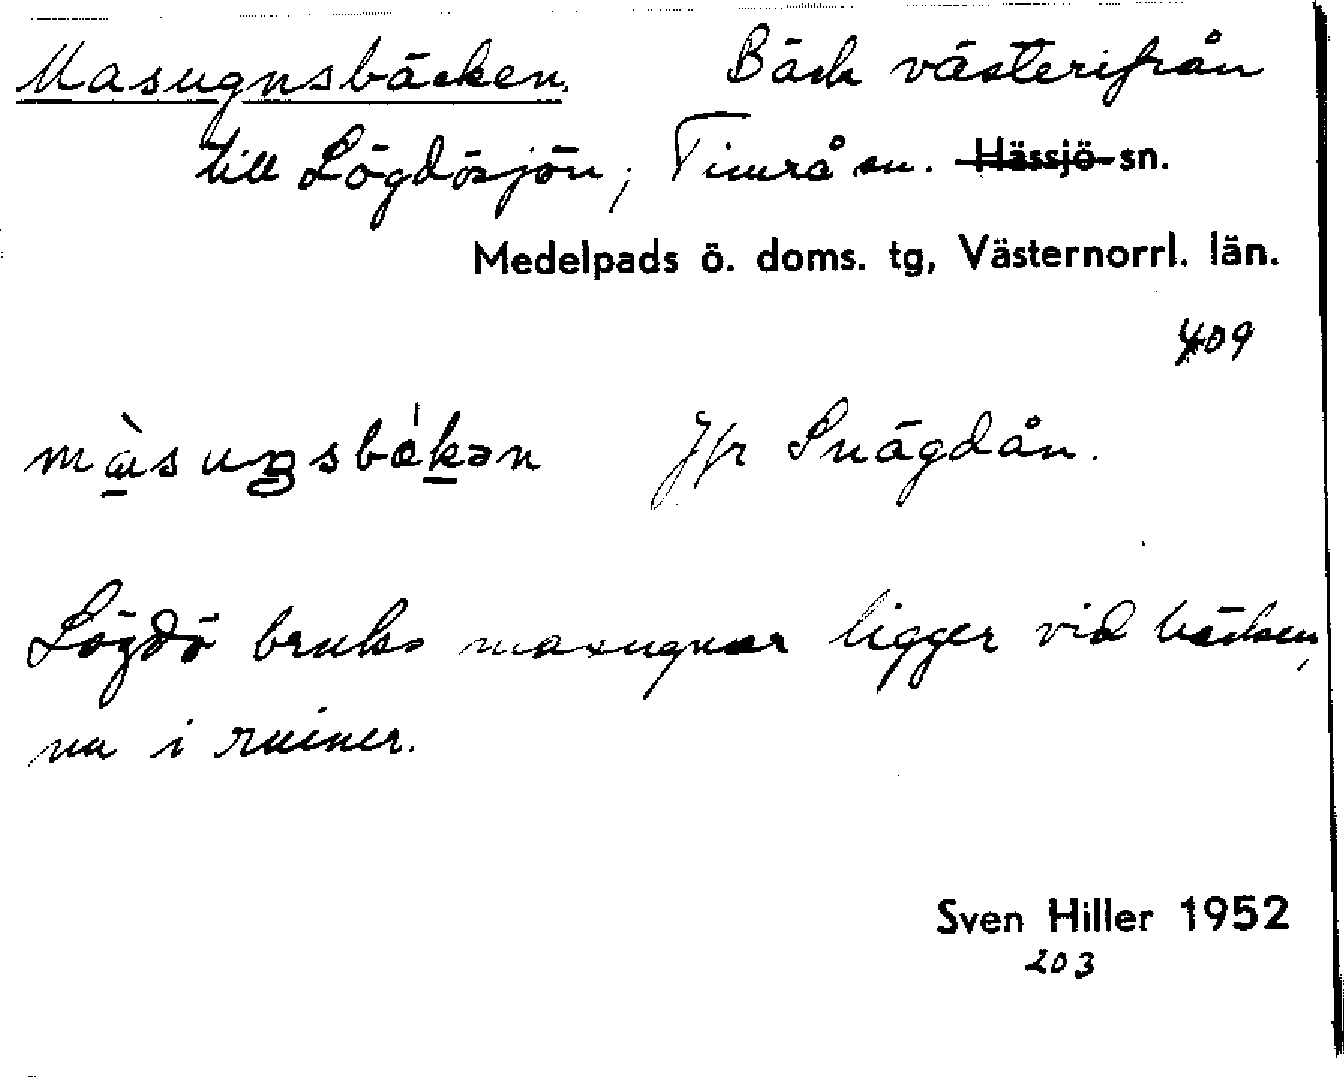 Masugnsbäcken. Bäck västerifrån
till Lögdösjön, Timrå sn. Hässjö sn.
Medelpads ö. doms. tg, Västernorrl. län.
409
Jfr Snägdån.
Lögdö bruks masugnar ligger vid bäcken,
nu i ruiner.
Sven Hiller 1952
203